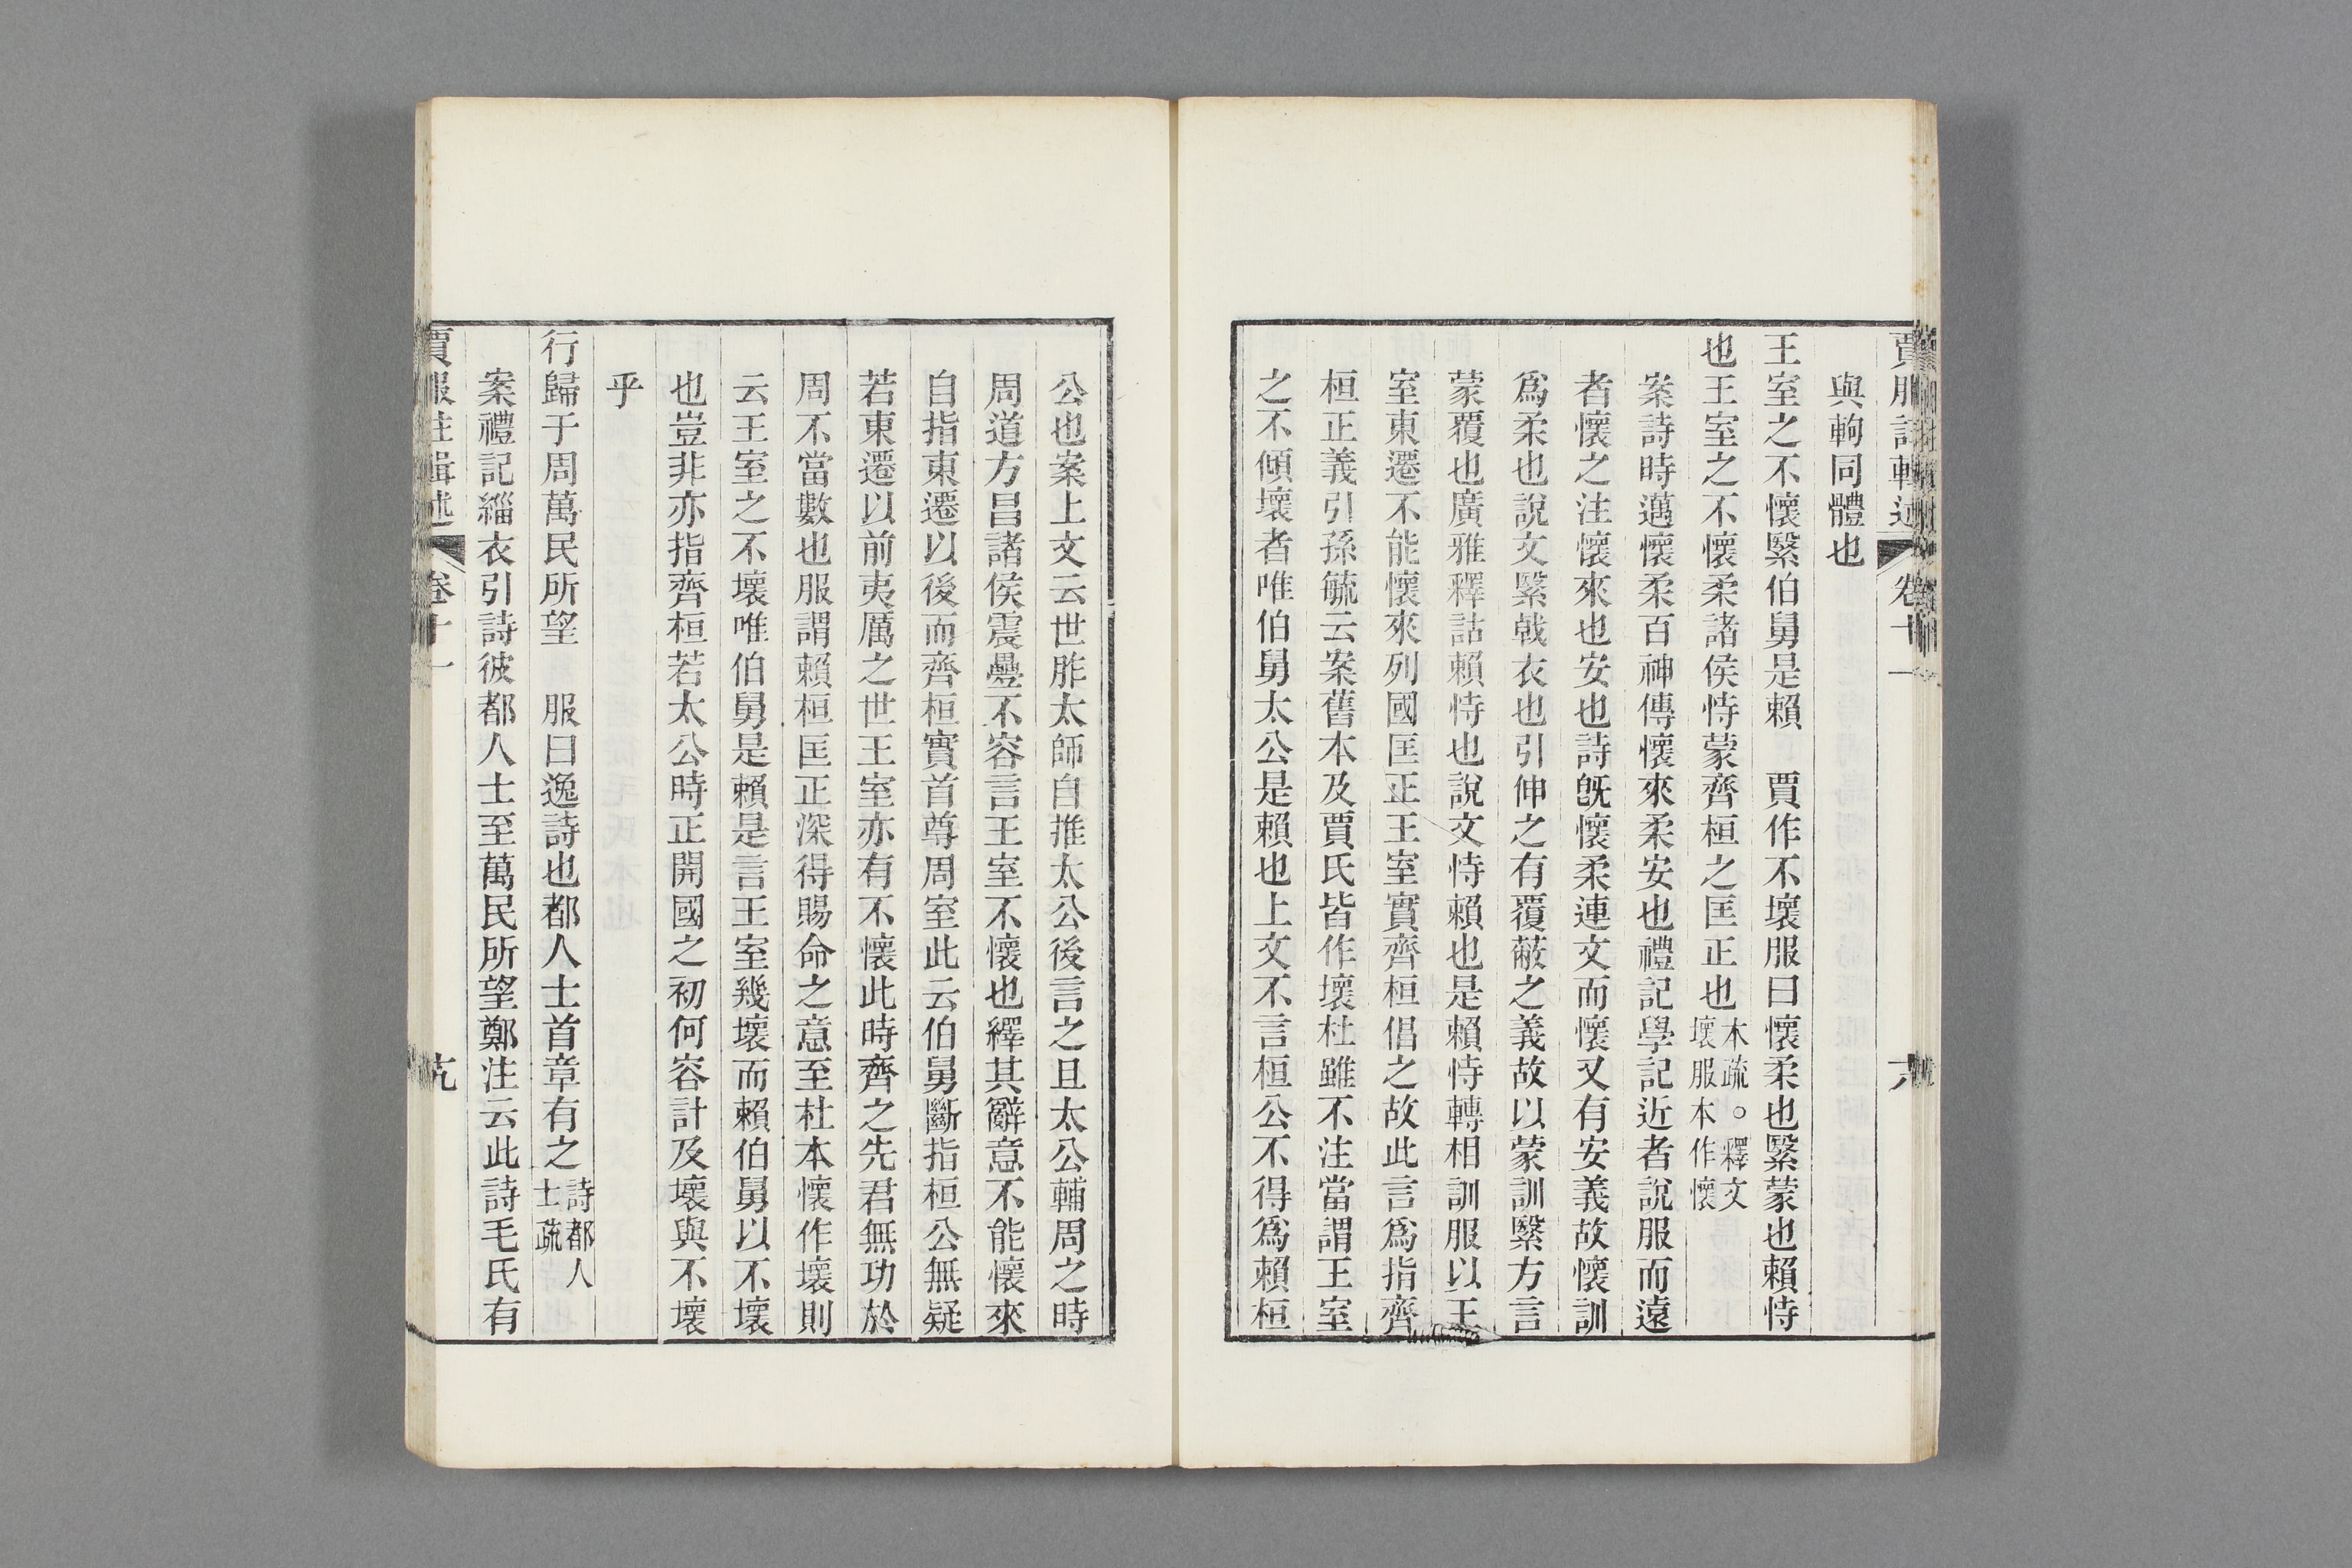 與軥同體也
王室之不懷繄伯舅是賴　賈作不壞服曰懷柔也繄蒙也賴恃
也王室之不懷柔諸侯恃蒙齊桓之匡正也本疏。釋文壞服本作懷
案詩時邁懷柔百神傳懷來柔安也禮記學記近者說服而遠
者懷之注懷來也安也詩旣懷柔連文而懷又有安義故懷訓
爲柔也說文繄戟衣也引伸之有覆蔽之義故以蒙訓繄方言
蒙覆也廣雅釋詁賴恃也說文恃賴也是賴恃轉相訓服以王
室東遷不能懷來列國匡正王室實齊桓倡之故此言爲指齊
桓正義引孫毓云案舊本及賈氏皆作壞杜雖不注當謂王室
之不傾壞者唯伯舅太公是賴也上文不言桓公不得爲賴桓
公也案上文云世胙太師自推太公後言之且太公輔周之時
周道方昌諸侯震疊不容言王室不懷也繹其辭意不能懷來
自指東遷以後而齊桓實首尊周室此云伯舅斷指桓公無疑
若東遷以前夷厲之世王室亦有不懷此時齊之先君無功於
周不當數也服謂賴桓匡正深得賜命之意至杜本懷作壞則
云王室之不壞唯伯舅是賴是言王室幾壞而賴伯舅以不壞
也豈非亦指齊桓若太公時正開國之初何容計及壞與不壞
乎
行歸于周萬民所望　服曰逸詩也都人士首章有之詩都人士疏
案禮記緇衣引詩彼都人士至萬民所望鄭注云此詩毛氏有
賈服注輯述　卷十一